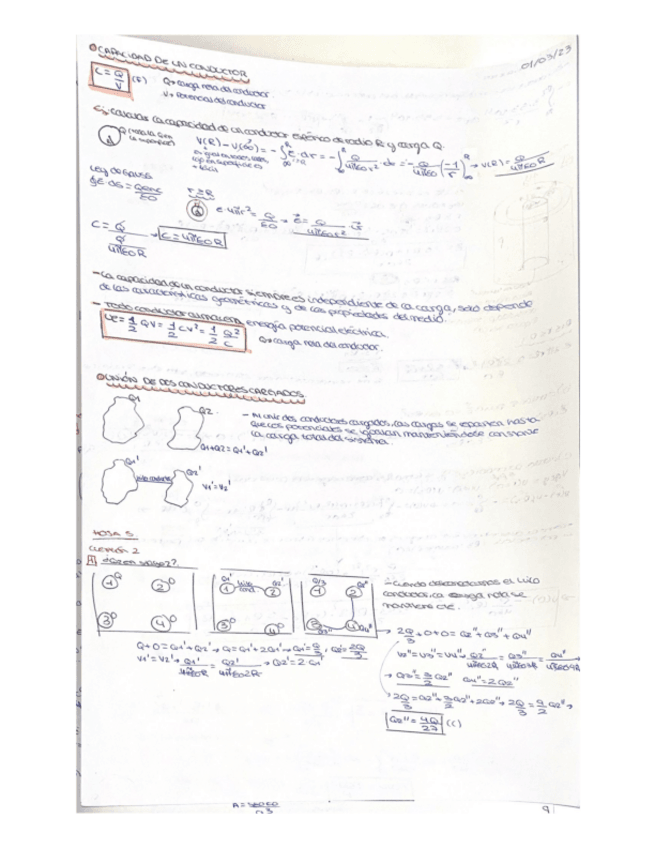 01/03/23
CAPACIDAD DE UN CONDUCTOR
C = Q/V (F) Q → carga neta del conductor
V → Potencial del conductor
Ej: calcular la capacidad de un conductor esférico de radio R y carga Q.
V(R) - V(∞) = - ∫ E · dr = - ∫ Q/4πε0r² · dr = - Q/4πε0 (-1/r) → V(R) = Q/4πε0R
Ley de Gauss
∮E · ds = Qenc/ε0
r ≥ R
E · 4πr² = Q/ε0 → E = Q/4πε0r²
C = Q / Q/4πε0R → C = 4πε0R
- La capacidad de un conductor siempre es independiente de la carga, solo depende
de las características geométricas y de las propiedades del medio.
- Todo conductor almacena energía potencial eléctrica.
Ue = 1/2 QV = 1/2 CV² = 1/2 Q²/C
Q → carga neta del conductor.
UNIÓN DE DOS CONDUCTORES CARGADOS
Q1
Q2
- Al unir dos conductores cargados, las cargas se reparten hasta
que los potenciales se igualan manteniéndose constante
la carga total del sistema.
Q1+Q2 = Q1'+Q2'
Q1'
hilo conductor
Q2'
V1' = V2'
HOJA 5
CUESTIÓN 2
1 Q 2 0 3 0 4 0
Q1' 1 hilo cond Q2' 2 3 0 4 0
Q/3 1 2 Q2'' 3 Q3'' 4 Q4''
- Cuando desconectamos el hilo
conductor, la carga neta se
mantiene cte.
Q + 0 = Q1' + Q2' → Q = Q1' + 2Q1' → Q1' = Q/3, Q2' = 2Q/3
V1' = V2' → Q1'/4πε0R = Q2'/4πε02R → Q2' = 2Q1'
2Q/3 + 0 + 0 = Q2'' + Q3'' + Q4''
V2'' = V3'' = V4'' → Q2''/4πε02R = Q3''/4πε03R = Q4''/4πε04R
→ Q3'' = 3/2 Q2'' Q4'' = 2Q2''
2Q/3 = Q2'' + 3/2 Q2'' + 2Q2'' → 2Q/3 = 9/2 Q2'' →
Q2'' = 4Q/27 (C)